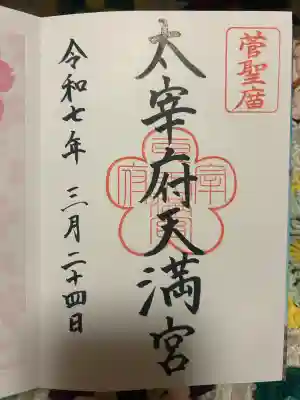 菅聖庿
太宰府天満宮
令和七年 三月二十四日